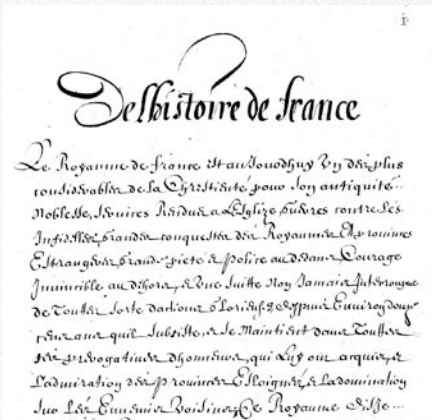 1
De lhistoire de france
Le Royaume de france est aujourdhuy Un des plus
considerables de la Chrestienté pour son antiquité
Noblesse, services Rendus a LEglize, guerres contre Les
Infidelles, grandes conquestes des Royaumes Et provinces
Estrangeres, grande pieté et Police au dedans, Courage
Invincible au dehors, et Une suitte Non Jamais Interrompue
de Touttes sorte dactions Glorieuses depuis Environ douze
cens ans quil subsiste, et se Maintient dans Touttes
ses prerogatives dhonneur, qui Luy ont acquis, et
Ladmiration des provinces Esloignées, et La domination
sur Les Ennemis Voisins, Ce Royaume